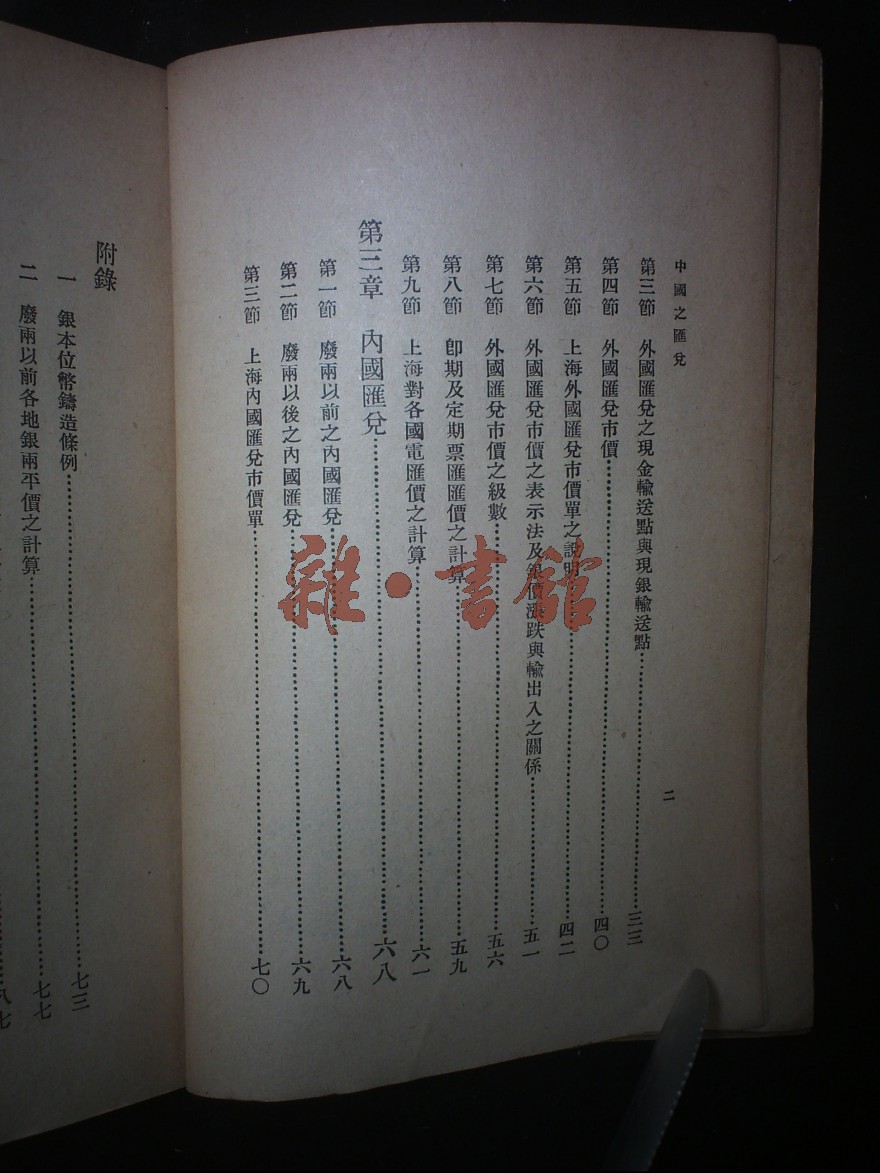 中國之匯兌
二
第三節 外國匯兌之現金輸送點與現銀輸送點……三三
第四節 外國匯兌市價……四〇
第五節 上海外國匯兌市價單之說明……四二
第六節 外國匯兌市價之表示法及銀價漲跌與輸出入之關係……五一
第七節 外國匯兌市價之級數……五六
第八節 卽期及定期票匯匯價之計算……五九
第九節 上海對各國電匯價之計算……六一
第三章 內國匯兌……六八
第一節 廢兩以前之內國匯兌……六八
第二節 廢兩以後之內國匯兌……六九
第三節 上海內國匯兌市價單……七〇
附錄
一 銀本位幣鑄造條例……七三
二 廢兩以前各地銀兩平價之計算……七七
八七
雜·書館